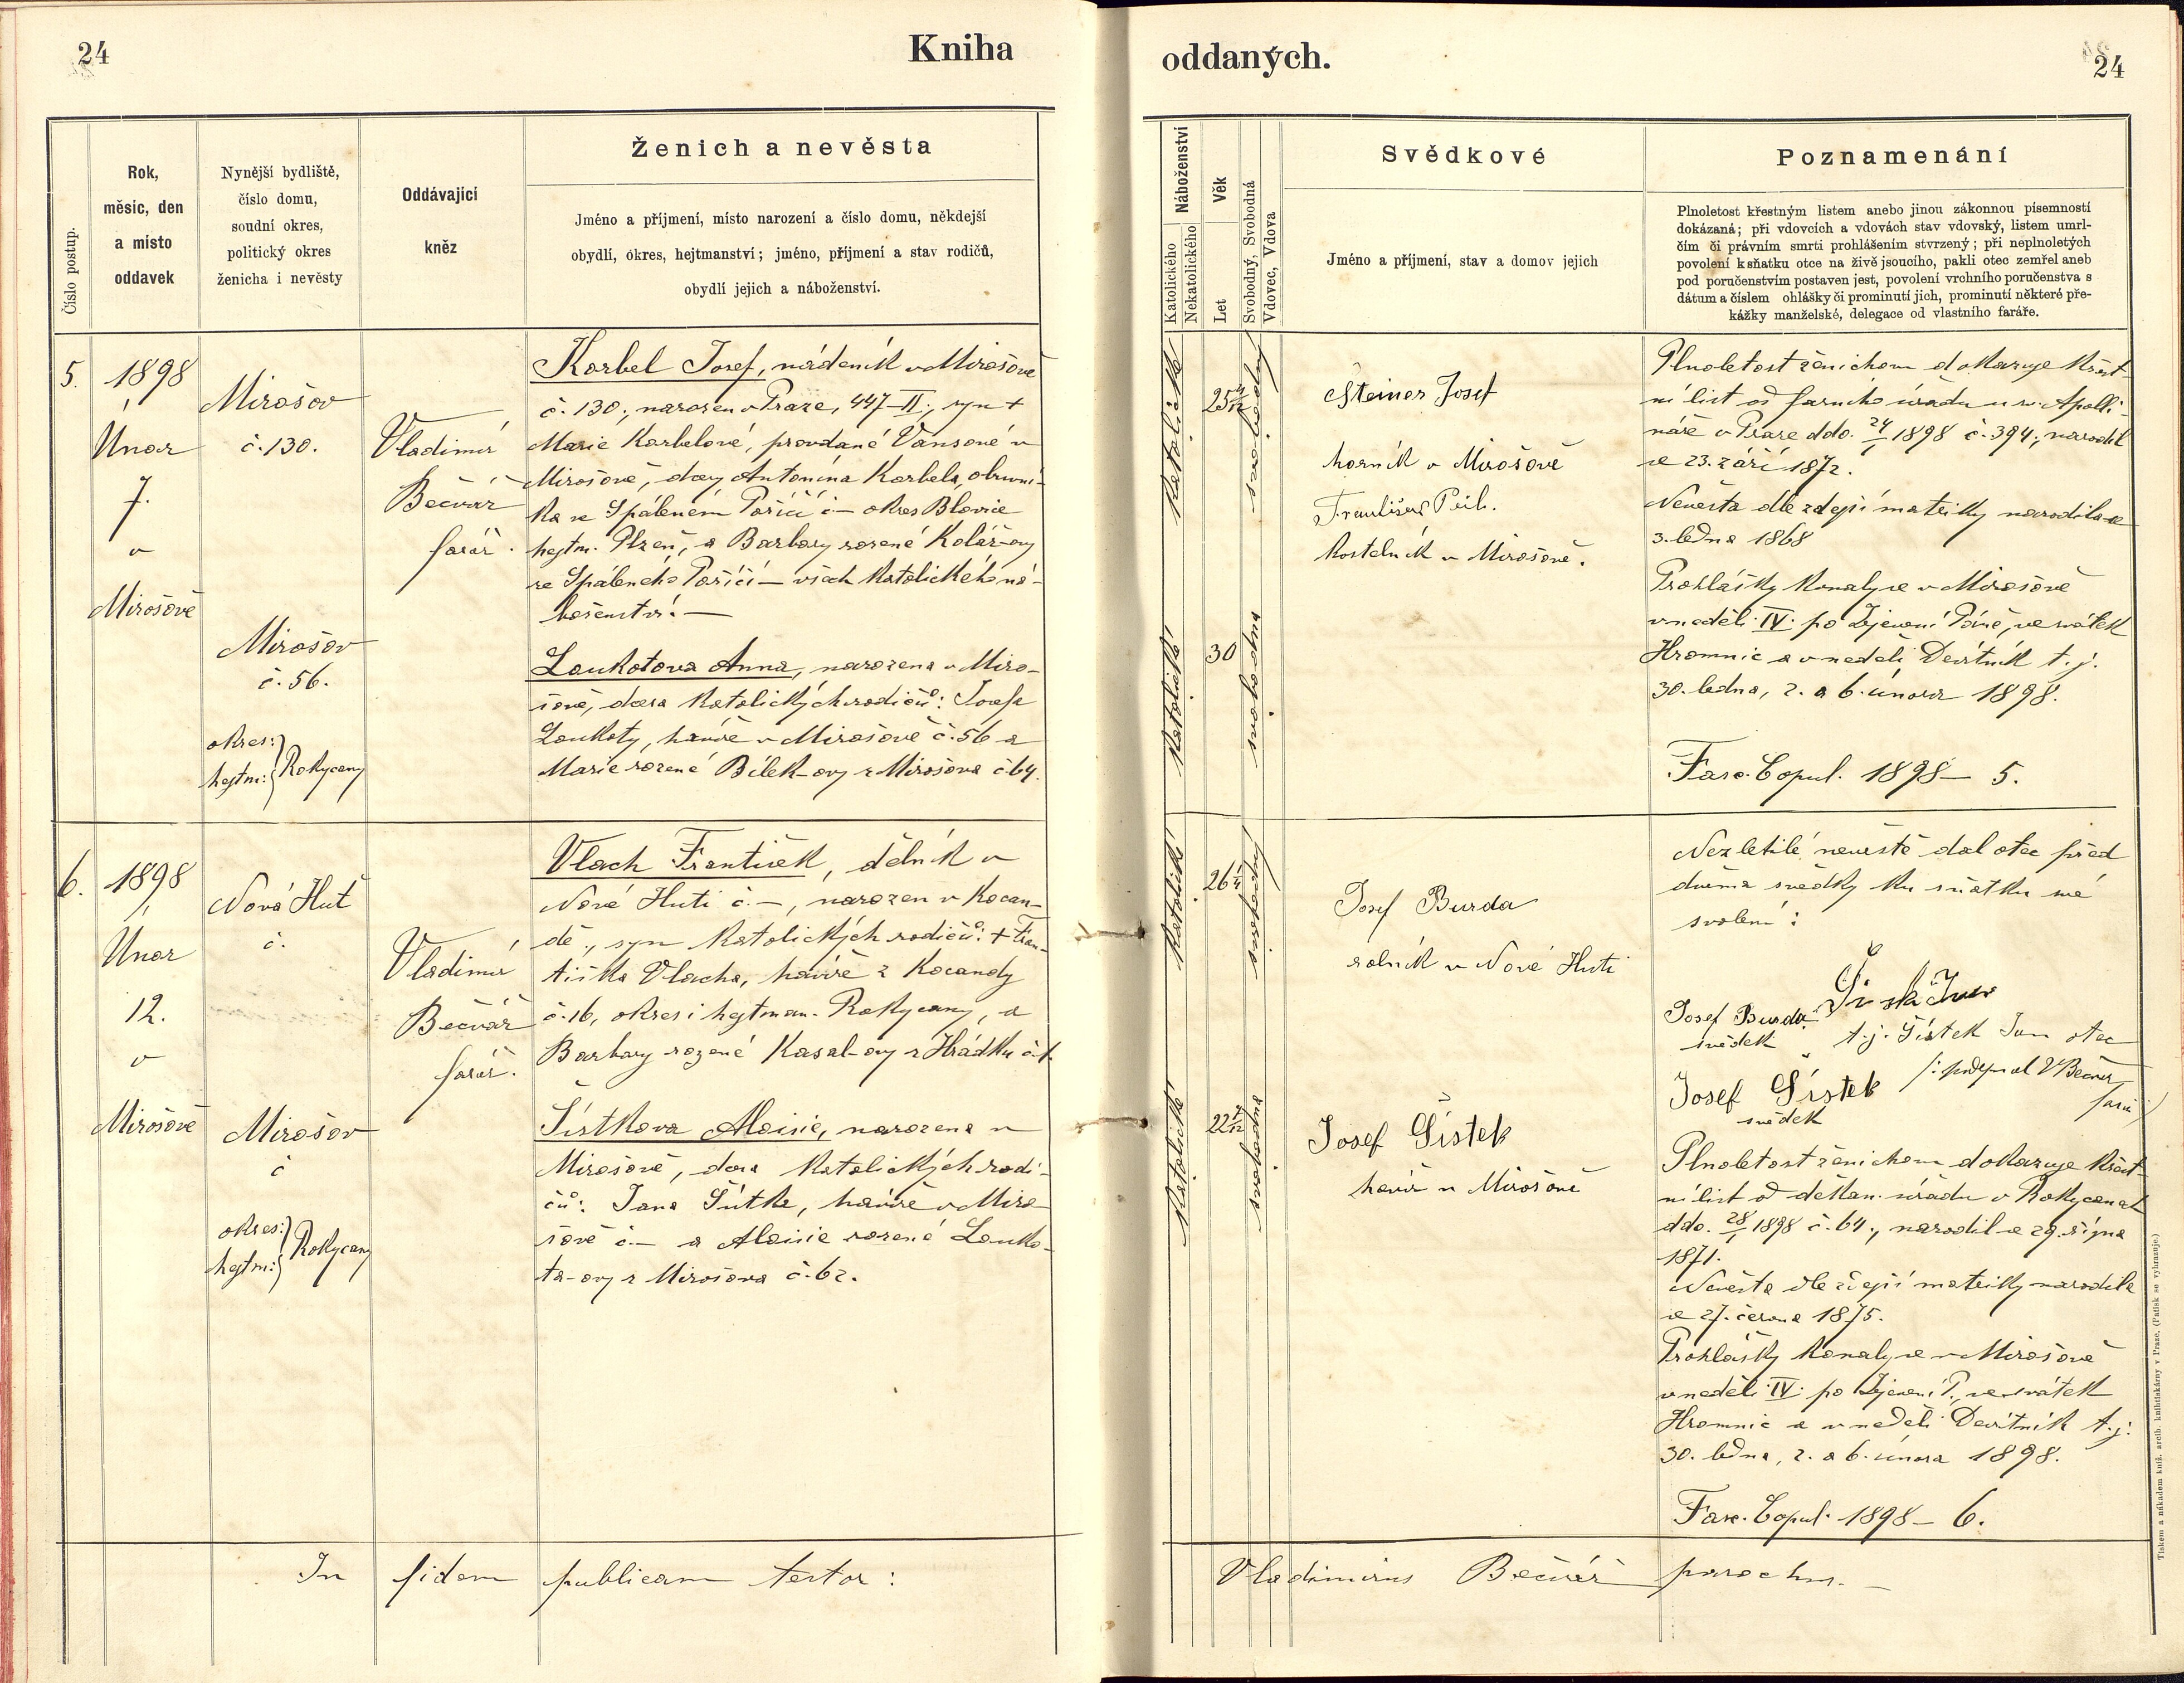 24
Kniha
Číslo postup.
Rok,
měsíc, den
a místo
oddavek
Nynější bydliště,
číslo domu,
soudní okres,
politický okres
ženicha i nevěsty
Oddávající
kněz
Ženich a nevěsta
Jméno a příjmení, místo narození a číslo domu, někdejší
obydlí, okres, hejtmanství; jméno, příjmení a stav rodičů,
obydlí jejich a náboženství.
5.
1898
Únor
7.
v
Mirošově
Mirošov
č. 130.
Mirošov
č. 56.
okres:
hejtm: } Rokycany
Vladimír
Bečvář
farář.
Korbel Josef, nádeník v Mirošově
č. 130., narozen v Praze, 447-II., syn +
Marie Korbelové, provdané Vansoné v
Mirošově, dcery Antonína Korbela, obuvní-
ka ve Spáleném Poříčí č – okres Blovice
hejtm. Plzeň, a Barbory rozené Kolář-ovy
ze Spáleného Poříčí – všech katolického ná-
boženství. —
Loukotova Anna, narozena v Miro-
šově, dcera katolických rodičů: Josefa
Loukoty, havíře v Mirošově č. 56 a
Marie rozené Bílek-ovy z Mirošova č 64.
6.
1898
Únor
12.
v
Mirošově
Nová Huť
č.
Mirošov
č
okres:
hejtm: } Rokycany
Vladimír
Bečvář
farář.
Vlach František, dělník v
Nové Huti č. –, narozen v Kocan-
dě., syn katolických rodičů: + Fran-
tiška Vlacha, havíře z Kocandy
č. 16, okres i hejtman. Rokycany, a
Barbory rozené Kasal-ovy z Hrádku č. 1.
Šístkova Aloisie, narozena v
Mirošově, dcera katolických rodi-
čů: Jana Šístka, havíře v Miro-
šově č. – a Aloisie rozené Louko-
ta-ovy z Mirošova č. 62.
In fidem publicam testor:
oddaných.
24
Náboženství
Katolického
Nekatolického
Věk
Let
Svobodný, Svobodná
Vdovec, Vdova
Svědkové
Jméno a příjmení, stav a domov jejich
Poznamenání
Plnoletost křestným listem anebo jinou zákonnou písemností
dokázaná; při vdovcích a vdovách stav vdovský, listem umrl-
čím či právním smrti prohlášením stvrzený; při neplnoletých
povolení k sňatku otce na živě jsoucího, pakli otec zemřel aneb
pod poručenstvím postaven jest, povolení vrchního poručenstva s
dátum a číslem ohlášky či prominutí jich, prominutí některé pře-
kážky manželské, delegace od vlastního faráře.
katolické
25 4/12
svobodný
katolické
30
svobodná
Steiner Josef
horník v Mirošově
František
kostelník v Mirošově.
Plnoletost ženichovu dokazuje křest-
ní list od farního úřadu u sv. Apolli-
náře v Praze ddo. 24/1 1898 č. 394., narodil
se 23. září 1872.
Nevěsta dle zdejší matriky narodila se
3. ledna 1868
Prohlášky konaly se v Mirošově
v neděli IV. po Zjevení Páně, ve svátek
Hromnic a v neděli Devítník t. j.
30. ledna, 2. a 6. února 1898.
Fasc. Copul. 1898 – 5.
katolické
26 1/4
svobodný
katolické
22
svobodná
Josef Burda
rolník v Nové Huti
Josef Šístek
havíř v Mirošově
Nezletilé nevěstě dal otec před
dvěma svědky ku sňatku své
svolení:
Josef Burda
svědek
t. j. Šístek Jan otec
Josef Šístek
svědek
/: podepsal V Bečvář
farář
Plnoletost ženichovu dokazuje křest-
ní list od děkan. úřadu v Rokycanech
ddo. 28/1 1898 č. 64., narodil se 29. října
1871.
Nevěsta dle zdejší matriky narodila
se 27. června 1875.
Prohlášky konaly se v Mirošově
v neděli IV. po Zjevení P., ve svátek
Hromnic a v neděli Devítník t. j.:
30. ledna, 2. a 6. února 1898.
Fasc. Copul. 1898 – 6.
Vladimirus Bečvář parochus. –
Tiskem a nákladem kníž. arcib. knihtiskárny v Praze. (Patisk se vyhrazuje.)